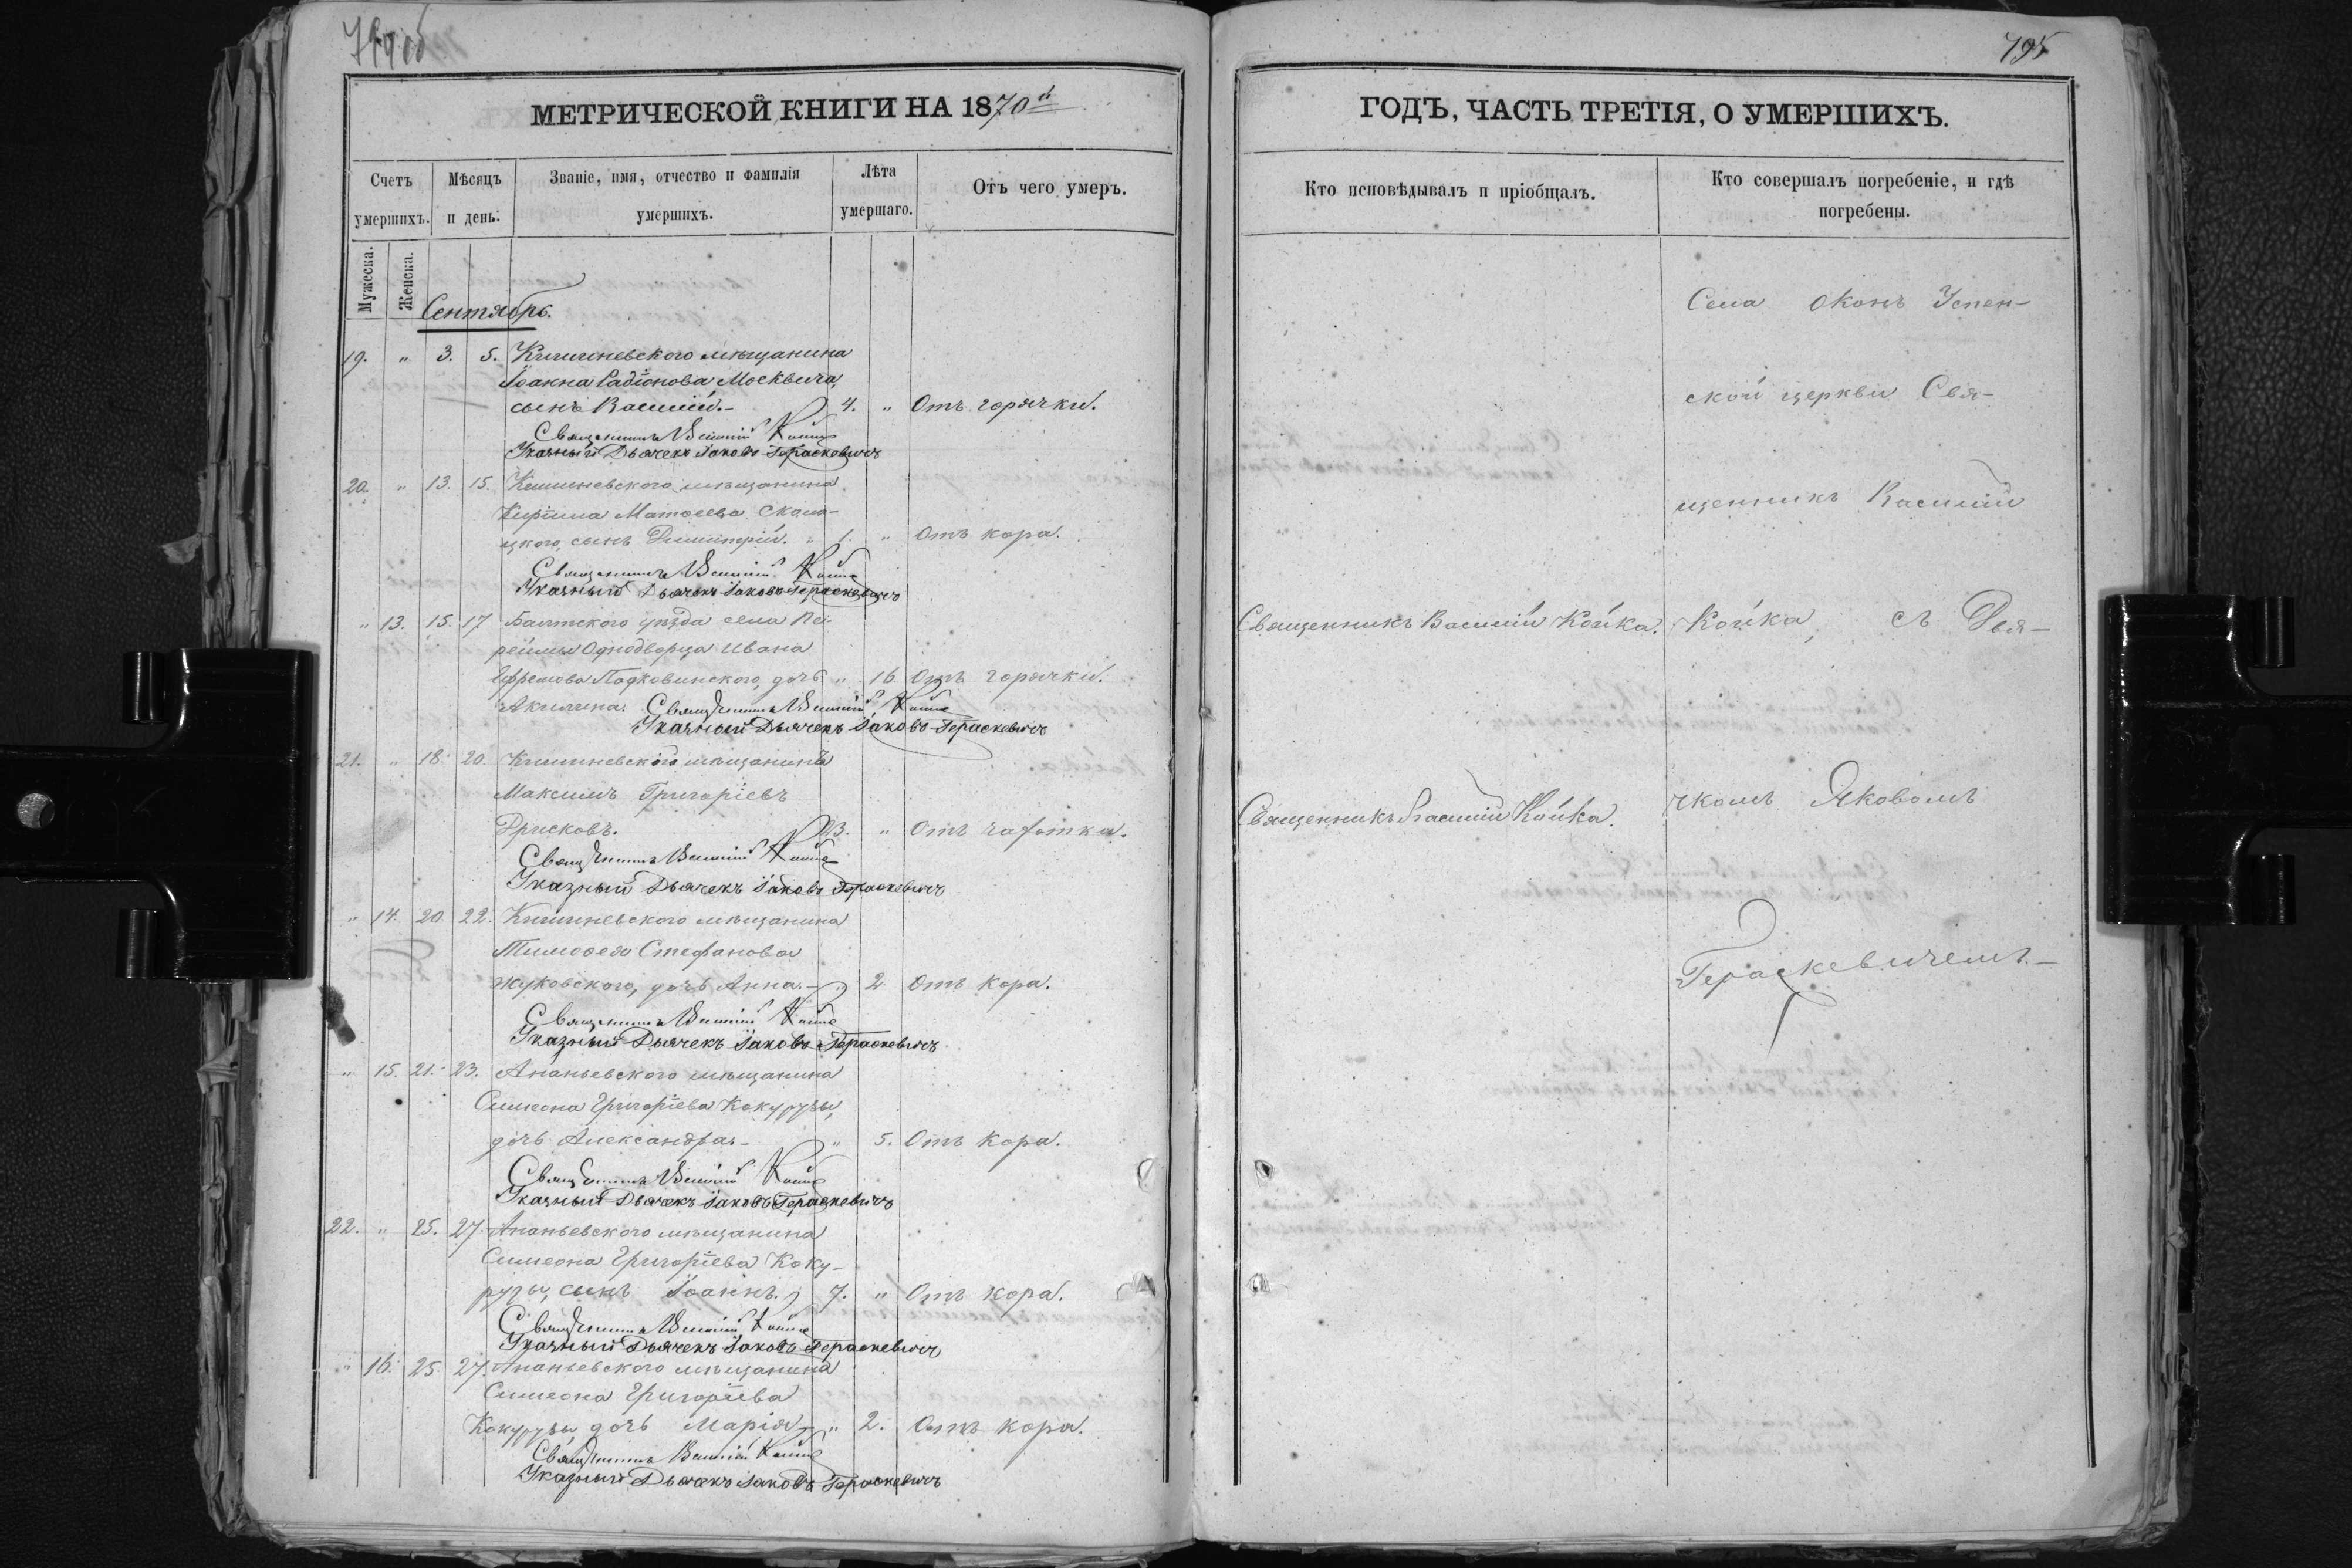 794об
МЕТРИЧЕСКОЙ КНИГИ НА 1870й
Счетъ умершихъ.
Мѣсяцъ и день.
Званіе, имя, отчество и фамилія умершихъ.
Лѣта умершаго.
Отъ чего умеръ.
Мужеска.
Женска.
Сентябрь.
19. " 3. 5. Кишиневскаго мѣщанина
Іоанна Радіонова Москвича,
сынъ Василій.- 4. " Отъ горячки.
Священникъ Василій Койка
Указный Дьячекъ Іаковъ Гераскевичъ
20. " 13. 15. Кишиневского мѣщанина
Кирилла Матѳеева Скома-
цкого, сынъ Димитрій. 1. " Отъ кора.
Священникъ Василій Койка
Указный Дьячекъ Іаковъ Гераскевичъ
" 13. 15. 17 Балтского уѣзда села Пе-
рѣймы Однодворца Ивана
Ефремова Подковинского, дочь " 16 Отъ горячки.
Акилина. Священникъ Василій Койка
Указный Дьячекъ Іаковъ Гераскевичъ
21. " 18. 20. Кишиневского мѣщанинъ
Максимъ Григоріевъ
23. " Отъ чахотки.
Священникъ Василій Койка
Указный Дьячекъ Іаковъ Гераскевичъ
" 14. 20. 22. Кишиневского мѣщанина
Тимоѳея Стефанова
Жуковского, дочь Анна.- 2 Отъ кора.
Священникъ Василій Койка
Указный Дьячекъ Іаковъ Гераскевичъ
" 15. 21. 23. Ананьевского мѣщанина
Симеона Григоріева Кокурузы,
дочь Александра- " 5. Отъ кора.
Священникъ Василій Койка
Указный Дьячекъ Іаковъ Гераскевичъ
22. " 25. 27 Ананьевского мѣщанина
Симеона Григоріева Коку-
рузы, сынъ Іоаннъ. 7. " Отъ кора.
Священникъ Василій Койка
Указный Дьячекъ Іаковъ Гераскевичъ
" 16. 25. 27. Ананьевского мѣщанина
Симеона Григоріева
Кокурузы, дочь Марія- " 2. Отъ кора.
Священникъ Василій Койка
Указный Дьячекъ Іаковъ Гераскевичъ
795
ГОДЪ, ЧАСТЬ ТРЕТІЯ, О УМЕРШИХЪ.
Кто исповѣдывалъ и пріобщалъ.
Кто совершалъ погребеніе, и гдѣ погребены.
Священникъ Василій Койка.
Священникъ Василій Койка.
Села Оконъ Успен-
ской церкви Свя-
щенникъ Василій
Койка, съ Дья-
чкомъ Яковомъ
Гераскевичемъ.-